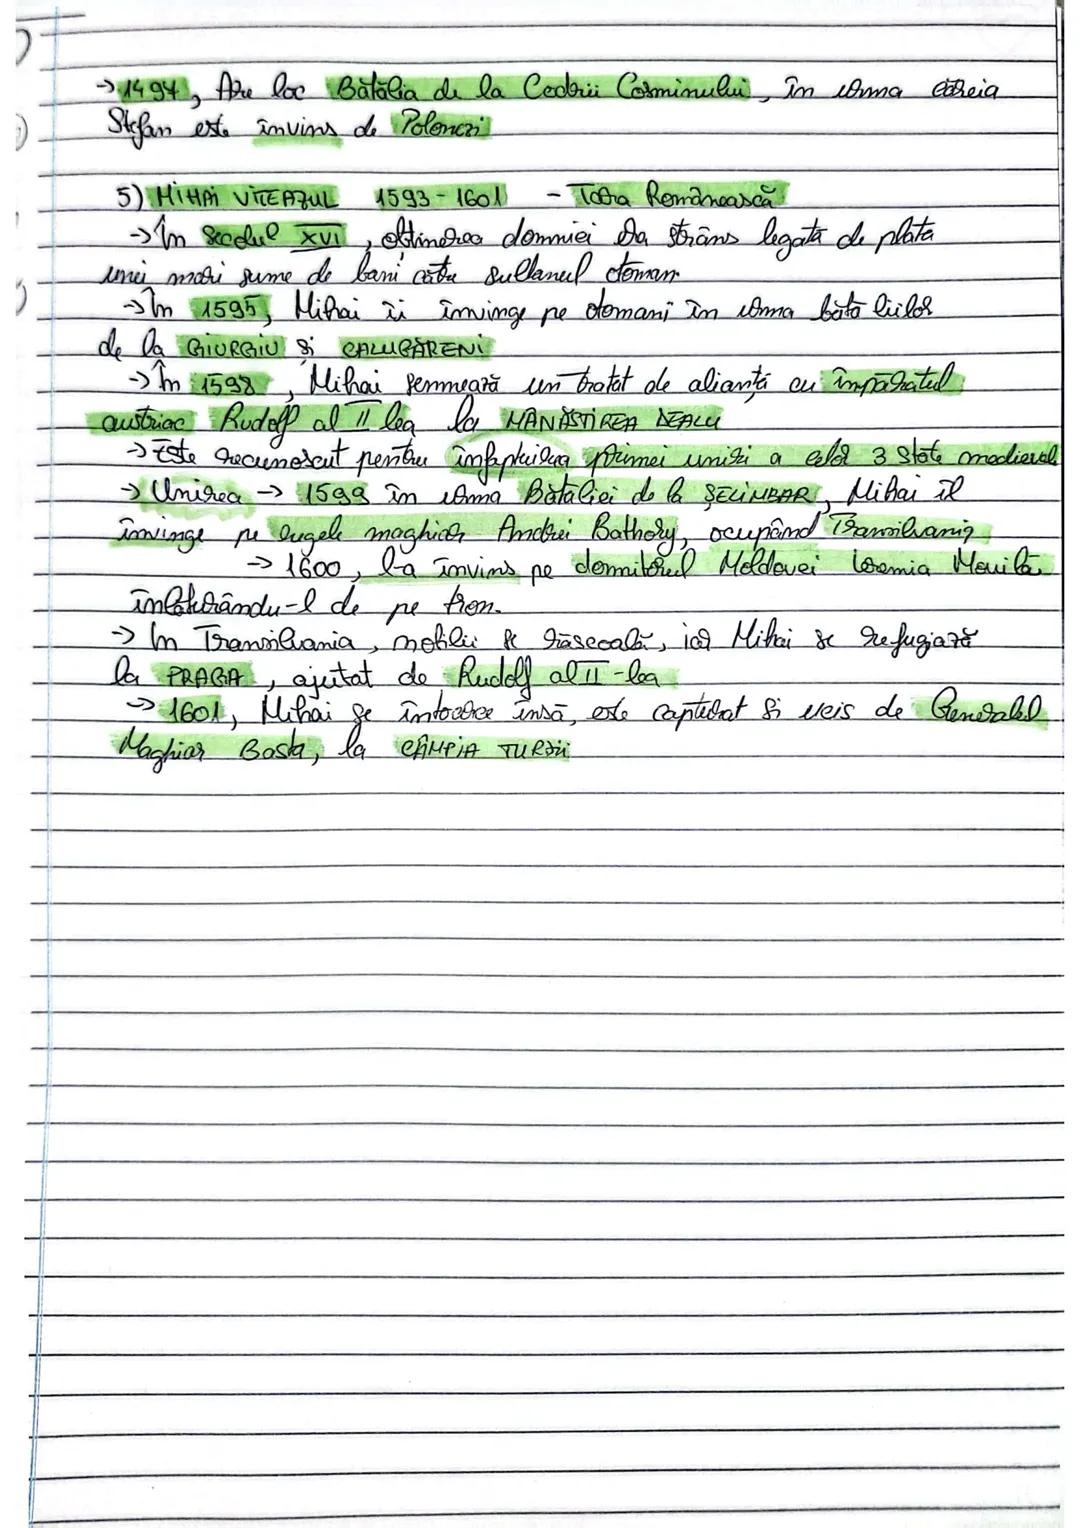 → 1497, Are loc Bătălia de la Codrii Cosminului, în urma căreia
Ștefan este învins de Polonezi
5) MIHAI VITEAZUL 1593-1601 - Țara Românească
→ În Secolul XVI, obținerea domniei era strâns legată de plata
unei mari sume de bani către sultanul otoman.
→ În 1595, Mihai îi învinge pe otomani în urma bătăliilor
de la GIURGIU și CĂLUGĂRENI
→ În 1598, Mihai semnează un tratat de alianță cu împăratul
austriac Rudolf al II lea la MĂNĂSTIREA DEALU
→ Este recunoscut pentru înfăptuirea primei uniri a celor 3 state medievale
→ Unirea → 1599 în urma Bătăliei de la ȘELIMBAR, Mihai îl
învinge pe regele maghiar Andrei Bathory, ocupând Transilvania
→ 1600, l-a învins pe domnitorul Moldovei Ieremia Movilă
înlăturându-l de pe tron.
→ În Transilvania, nobilii se răscoală, iar Mihai se refugiază
la PRAGA, ajutat de Rudolf al II-lea
→ 1601, Mihai se întoarce însă, este capturat și ucis de Generalul
Maghiar Basta, la CÂMPIA TURZII